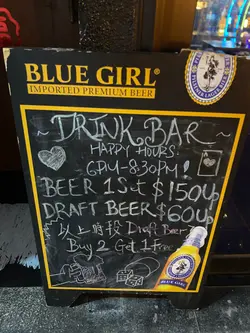 BLUE GIRL®
IMPORTED PREMIUM BEER
~DRINK BAR~
HAPPY HOURS
6PM-8:30PM!
BEER 1 Set $150Up
DRAFT BEER $60Up
以上時段 Draft Beer
Buy 2 Get 1 Free
BLUE GIRL